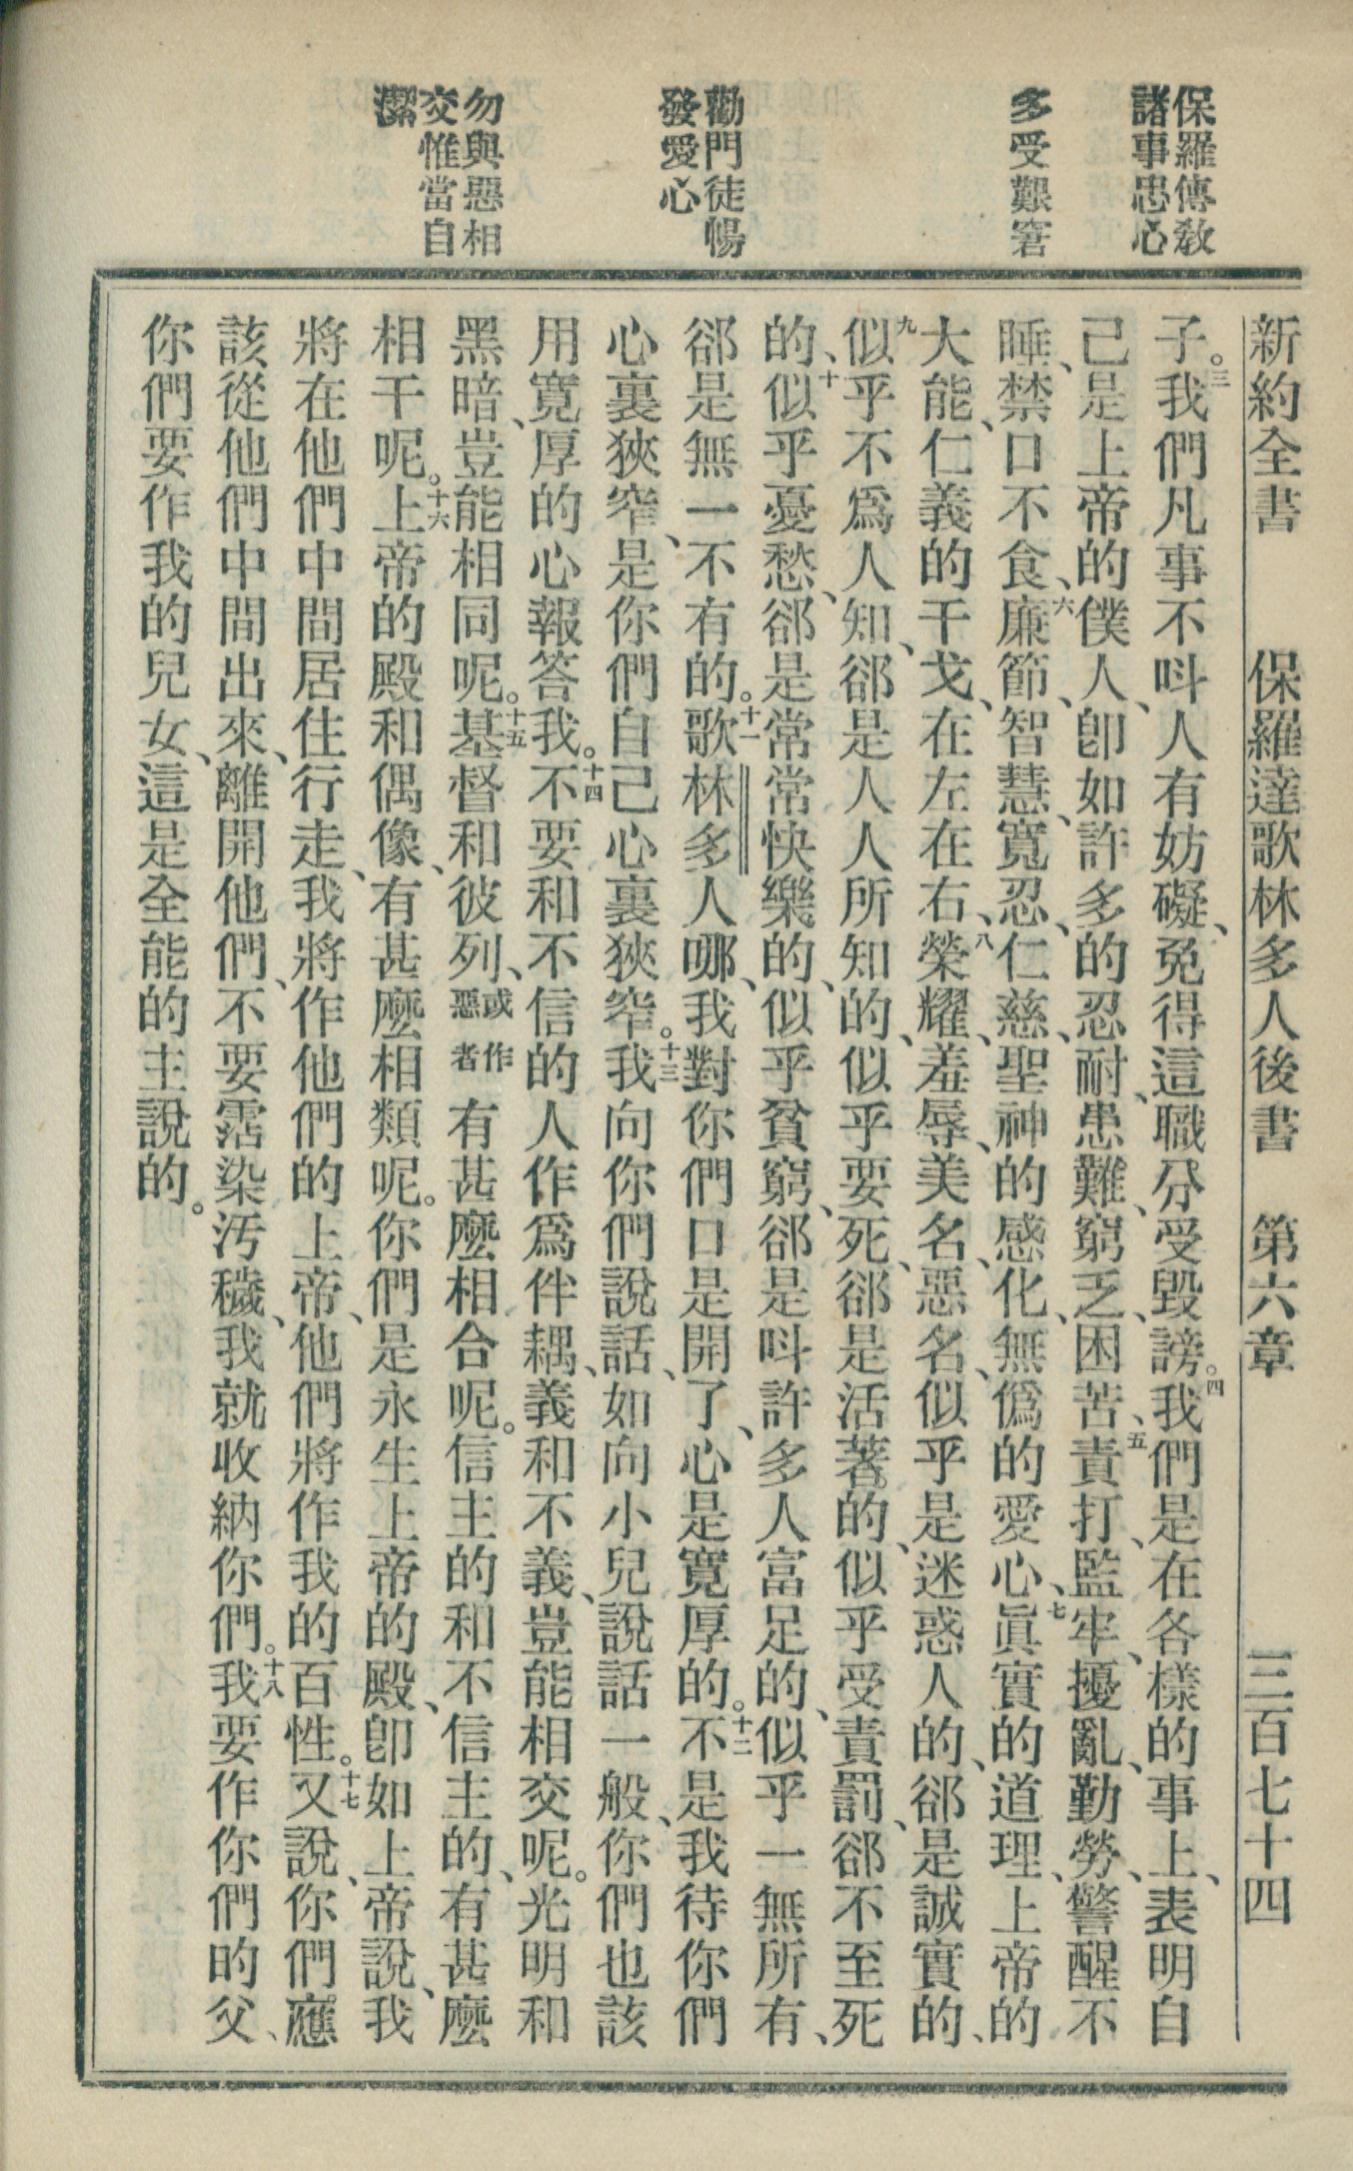 新約全書 保羅達歌林多人後書 第六章 三百七十四
保羅傳教
諸事忠心
多受艱窘
勸門徒暢
發愛心
勿與惡相
交惟當自
潔
子。三我們凡事不呌人有妨礙、免得這職分受毀謗。四我們是在各樣的事上、表明自
己是上帝的僕人、卽如許多的忍耐、患難、窮乏、困苦、五責打、監牢、擾亂、勤勞、警醒不
睡、禁口不食、六廉節、智慧、寬忍、仁慈、聖神的感化、無僞的愛心、七眞實的道理、上帝的
大能、仁義的干戈、在左在右、八榮耀、羞辱、美名、惡名、似乎是迷惑人的、郤是誠實的、
九似乎不爲人知、郤是人人所知的、似乎要死、郤是活著的、似乎受責罰、郤不至死
的、十似乎憂愁、郤是常常快樂的、似乎貧窮、郤是呌許多人富足的、似乎一無所有、
郤是無一不有的。十一歌林多人哪、我對你們口是開了、心是寬厚的。十二不是我待你們
心裏狹窄、是你們自己心裏狹窄。十三我向你們說話、如向小兒說話一般、你們也該
用寬厚的心報答我。十四不要和不信的人作爲伴耦、義和不義、豈能相交呢。光明和
黑暗、豈能相同呢。十五基督和彼列、或作惡者有甚麼相合呢。信主的和不信主的、有甚麼
相干呢。十六上帝的殿和偶像、有甚麼相類呢。你們是永生上帝的殿、卽如上帝說、我
將在他們中間居住行走、我將作他們的上帝、他們將作我的百性。十七又說、你們應
該從他們中間出來、離開他們、不要霑染汚穢、我就收納你們。十八我要作你們的父、
你們要作我的兒女、這是全能的主說的。